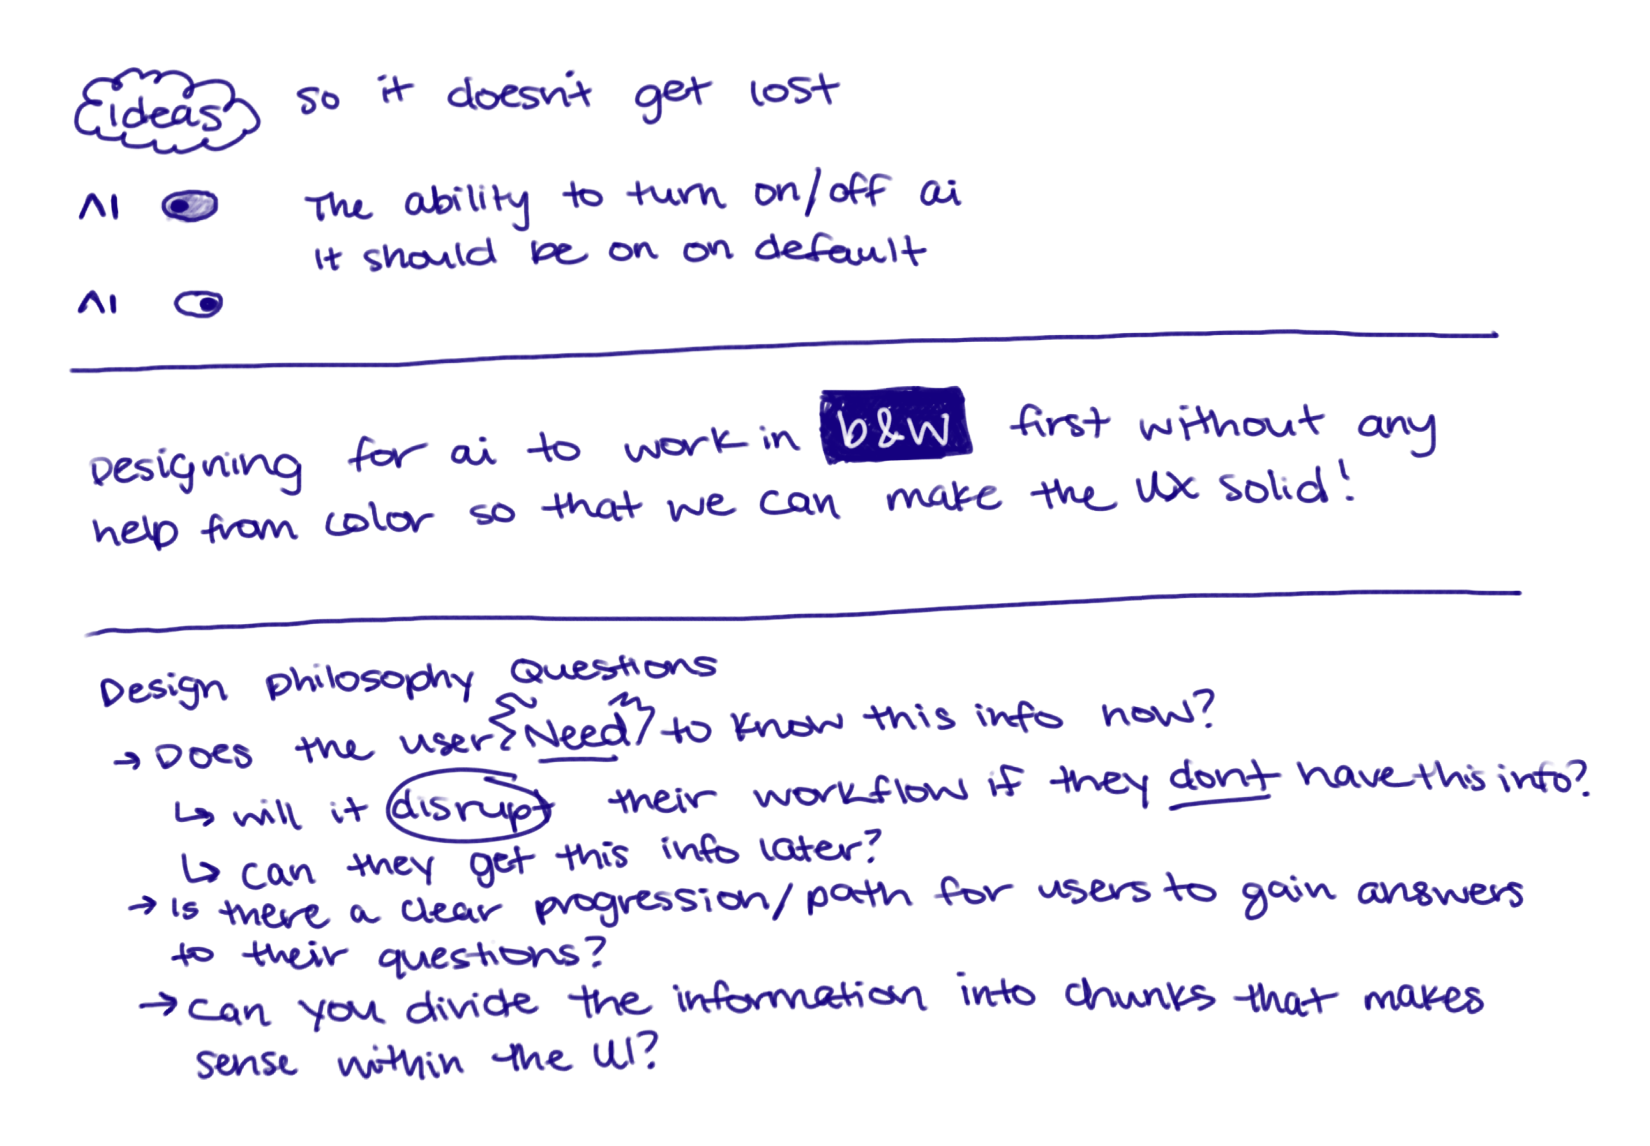 ideas so it doesn't get lost
AI The ability to turn on/off ai
It should be on on default
AI
Designing for ai to work in b&w first without any
help from color so that we can make the UX solid!
Design philosophy Questions
→ Does the user Need to know this info now?
↳ will it disrupt their workflow if they dont have this info?
↳ can they get this info later?
→ Is there a clear progression/path for users to gain answers
to their questions?
→ can you divide the information into chunks that makes
sense within the UI?